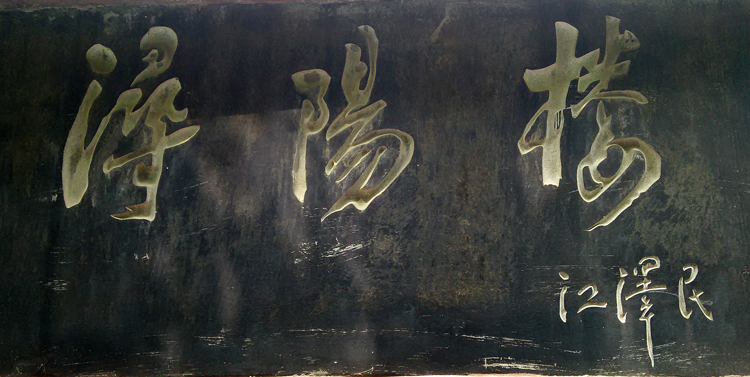 潯陽楼
江澤民